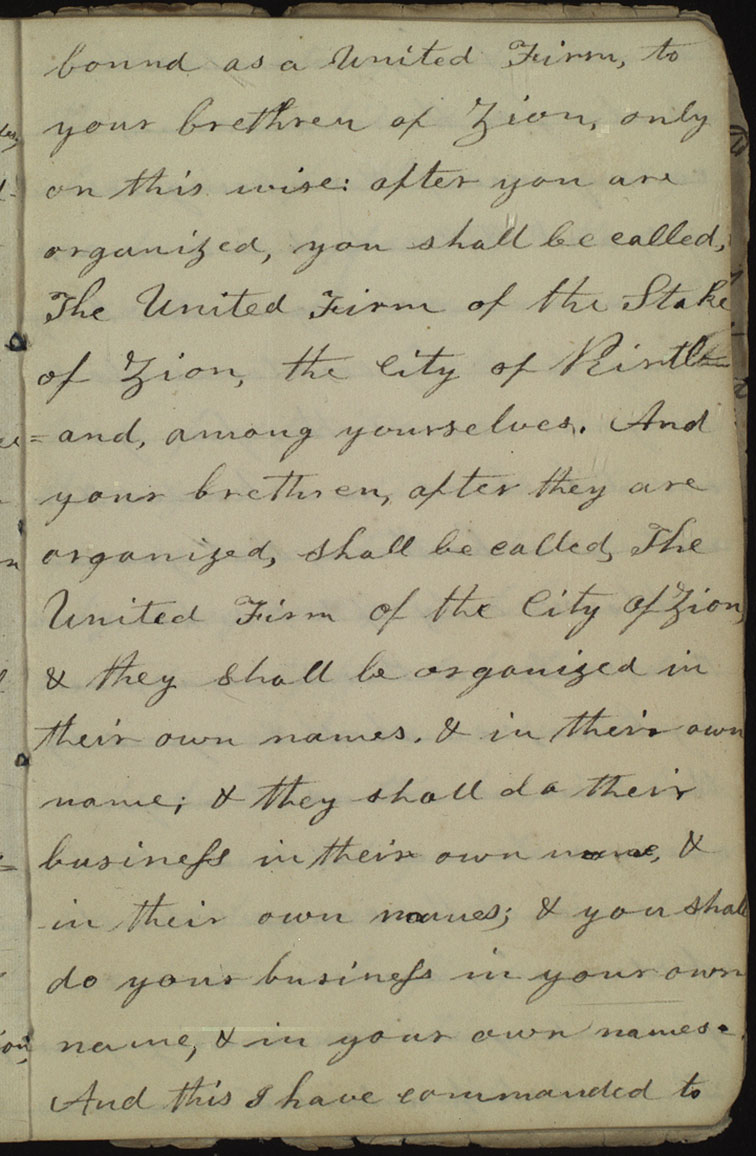 bound as a United Firm, to
your brethren of Zion, only
on this wise: after you are
organized, you shall be called,
The United Firm of the Stake
of Zion, the City of Kirtl=
=and, among yourselves. And
your brethren, after they are
organized, shall be called, The
United Firm of the City of Zion,
& they shall be organized in
their own names. & in their own
name; & they shall do their
business in their own name, &
in their own names; & you shall
do your business in your own
name, & in your own names.
And this I have commanded to